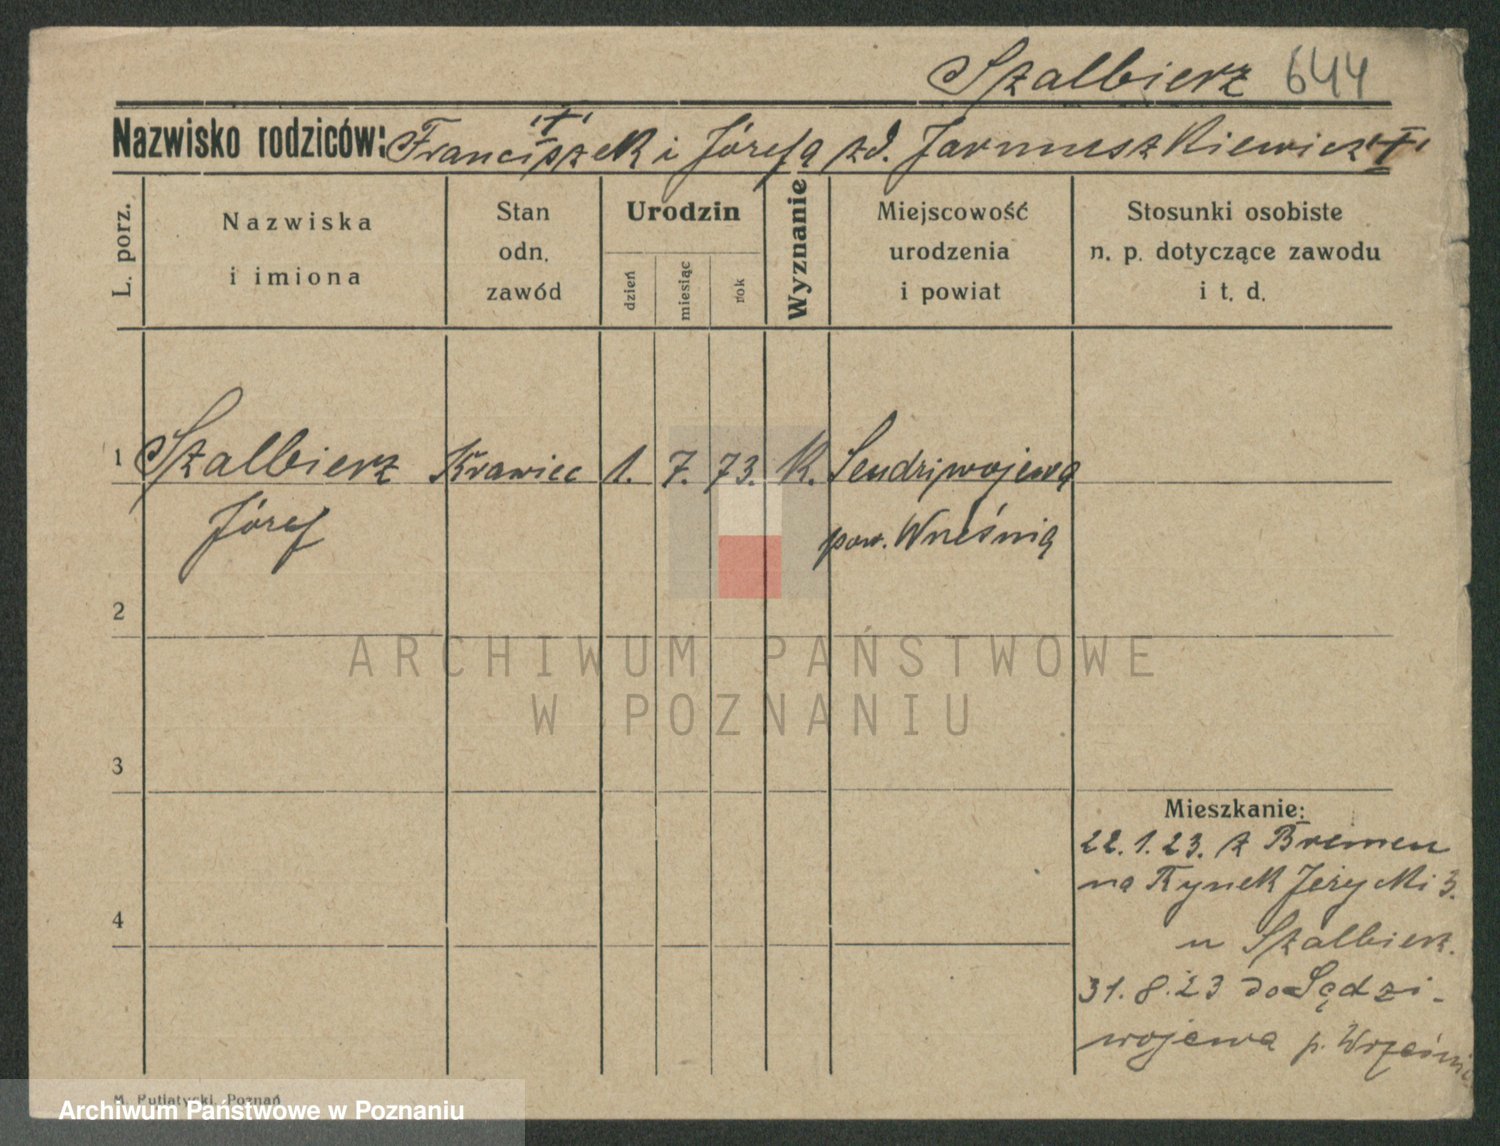 Szalbierz 644
Nazwisko rodziców: Franciszek "+" i Józefa zd. Jarmuszkiewicz "+"
L. porz.
Nazwiska
i imiona
Stan
odn.
zawód
Urodzin
dzień
miesiąc
rok
Wyznanie
Miejscowość
urodzenia
i powiat
Stosunki osobiste
n. p. dotyczące zawodu
i t. d.
1 Szalbierz Krawiec 1. 7. 73. K. Sendziwojewo
Józef pow. Września
2
ARCHIWUM PAŃSTWOWE
W POZNANIU
3
Mieszkanie:
22.1.23. z Bremen
na Rynek Jeżycki 3.
u Szalbierz.
4
31.8.23 do Sędzi-
wojewa p. Września
M. Putiatycki, Poznań
Archiwum Państwowe w Poznaniu